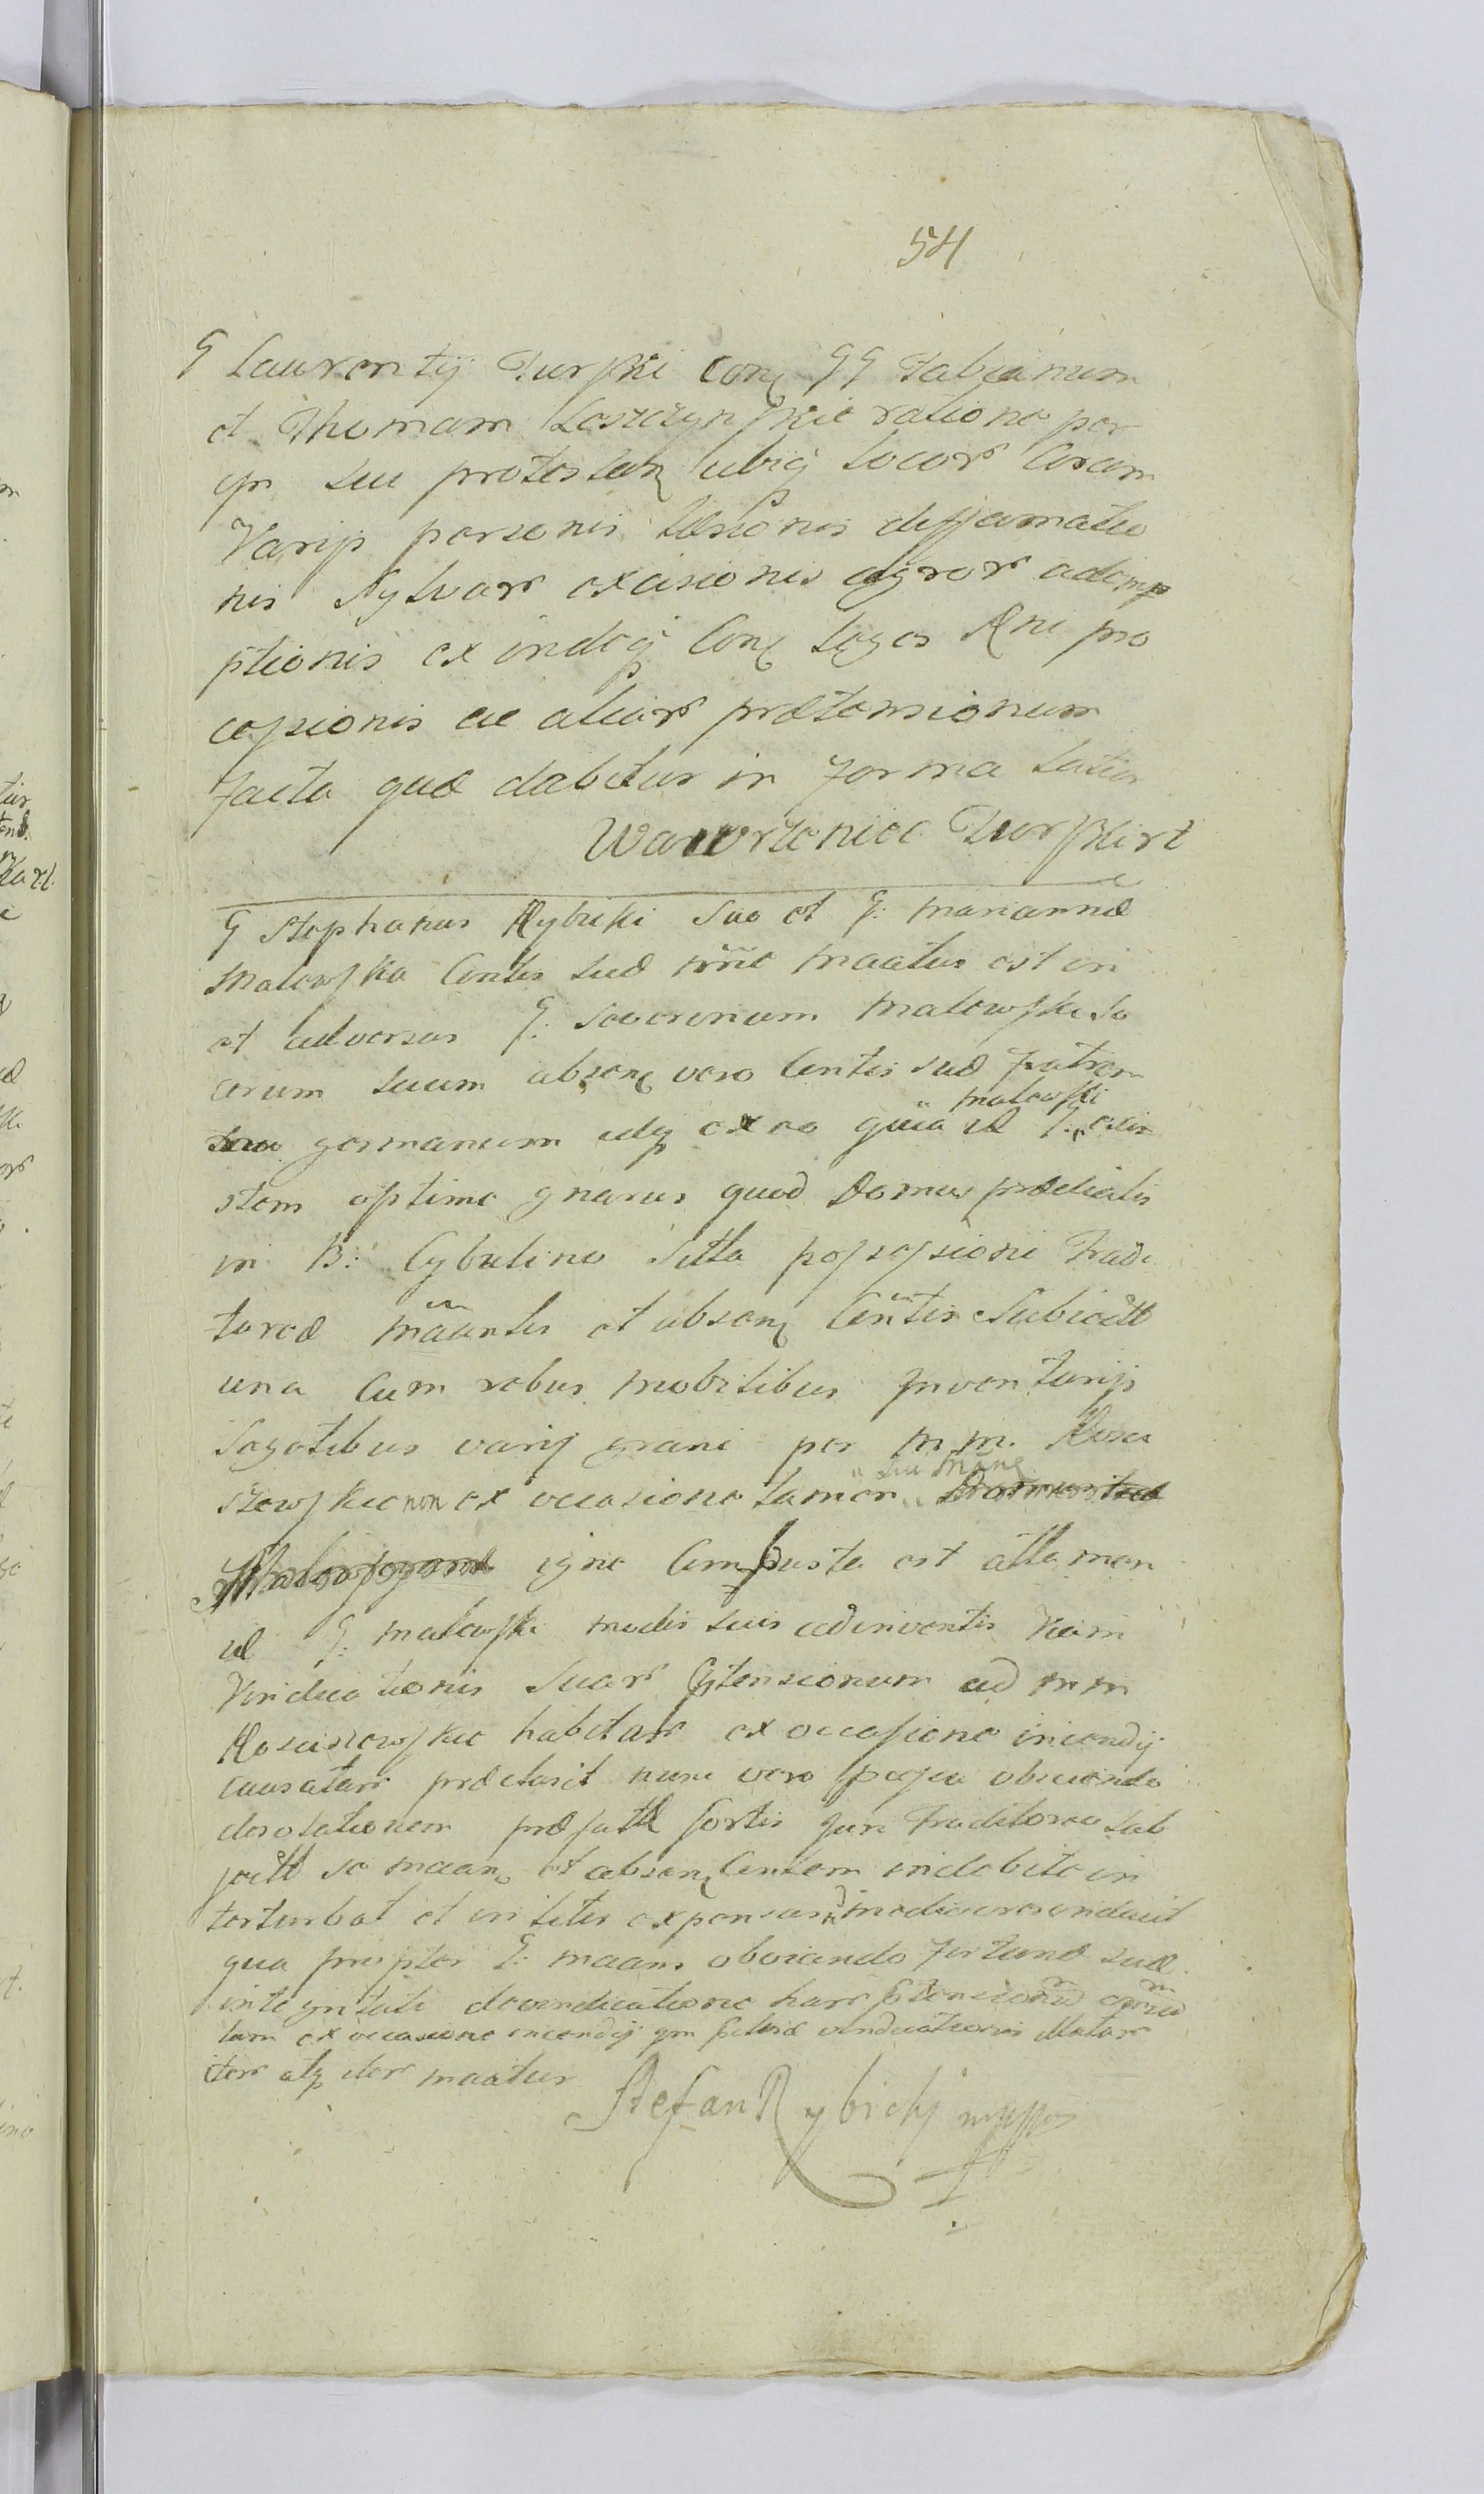 54
G Laurentÿ Turski Con GG Fabianum
et Thomam Leszczynskie ratione per
ipn sui protestan ubiq locor coram
Varijs personis læsionis diffamatio
nis Sylvar excisionis agror adem
ptionis ex indeq Con leges Rni pro
cessionis ac aliar prætensionum
facta quæ dabitur in forma latior
Wawrzeniec Turski
G Stephanus Rybicki Suo et G: Mariannæ
Malewska Contis suæ nnie maatus est in
et adversus G: Severinum Malewski So
cerum suum absen vero Contis suæ Patrem
germanum idq ex eo quia id G. Malewski exis
stem optime gnarus quod Domus prædialis
in B: Cybulino Sitta possessioni Tradi
toreæ maantis et absen Contis Subiectt
una Cum rebus mobilibus Inventarijs
Segetibus varij grani per M M. Rosci
szewskie non ex occasione tamen sui Mane
igne Combusta est attamen
id G: Malewski modis suis adinventis viam
Vindicationis Suar Ptensionum ad M M
Rosciszewskie habitar ex occasione incendÿ
causatar præclusit nunc vero obviando
desolationem præfatæ sortis Juri Traditoreo sub
jectt se maan et absen Contem indebite in
terturbat et in lites expensum modicas induxit
qua propter G: maans obviando fortunæ suæ
integritati devindicatione har Ptensionu
tam ex occasione incendÿ qm vindicationis illatar
iter atq iter maatur
Stefan Rybickÿ mppa